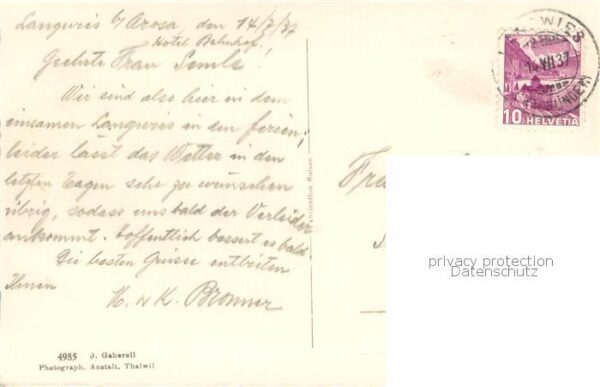 Langwies b/ Arosa, den 14/7/37
Hotel Bahnhof.
Geehrte Frau
Wir sind also hier in dem
einsamen Langwies in den Ferien;
leider lässt das Wetter in den
letzten Tagen sehr zu wünschen
übrig, sodass uns bald der Verleider
ankommt. Hoffentlich bessert es bald.
Die besten Grüsse entbieten
Ihnen
H. & K. Bronner
4985 J. Gaberell
Photograph. Anstalt, Thalwil
LANGWIES
14.VII.37
10 HELVETIA
Fra
privacy protection
Datenschutz